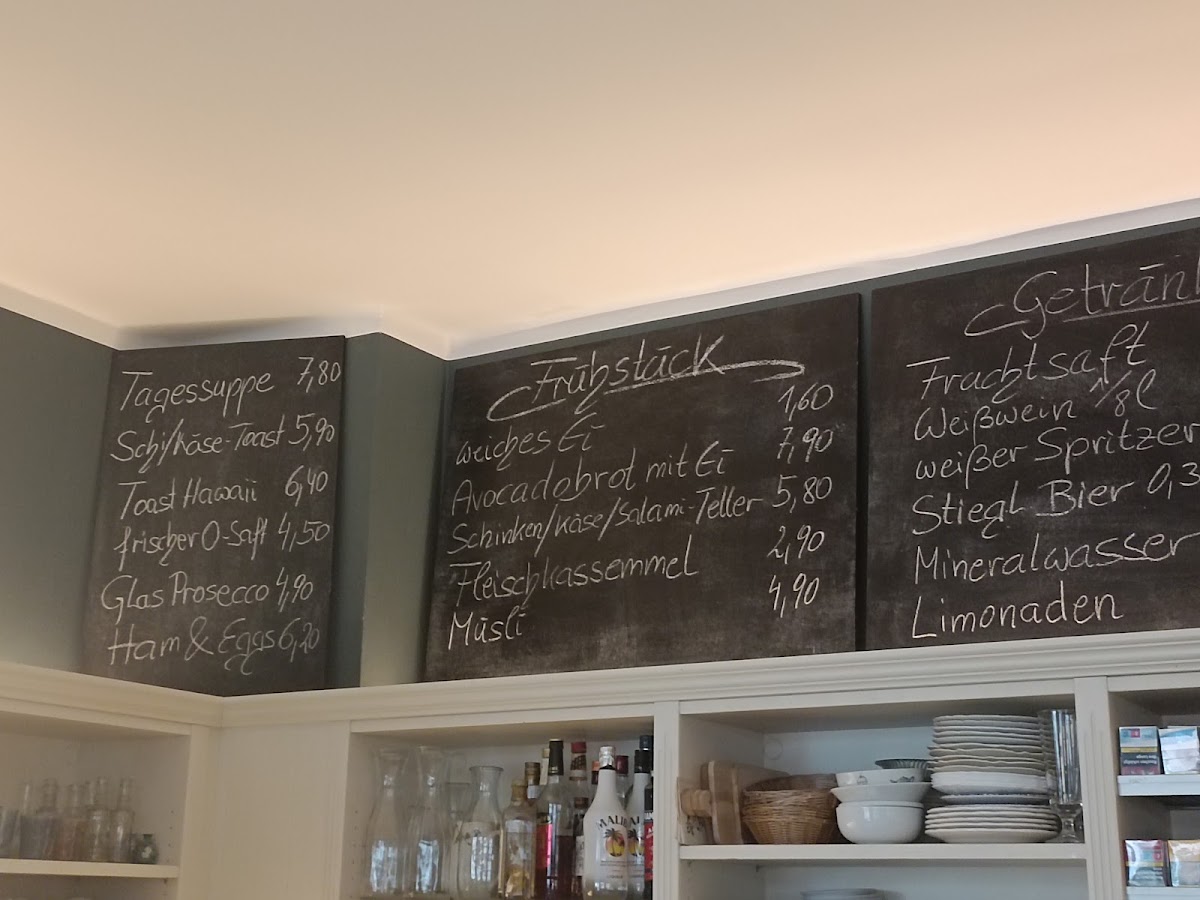 Tagessuppe 7,80
Schi/Käse-Toast 5,90
Toast Hawaii 6,40
frischer O-Saft 4,50
Glas Prosecco 4,90
Ham & Eggs 6,20
Frühstück
weiches Ei 1,60
Avocadobrot mit Ei 7,90
Schinken/Käse/Salami-Teller 5,80
Fleischkassemmel 2,90
Müsli 4,90
Getränk
Fruchtsaft
Weißwein 1/8l
weißer Spritzer
Stiegl Bier 0,3
Mineralwasser
Limonaden